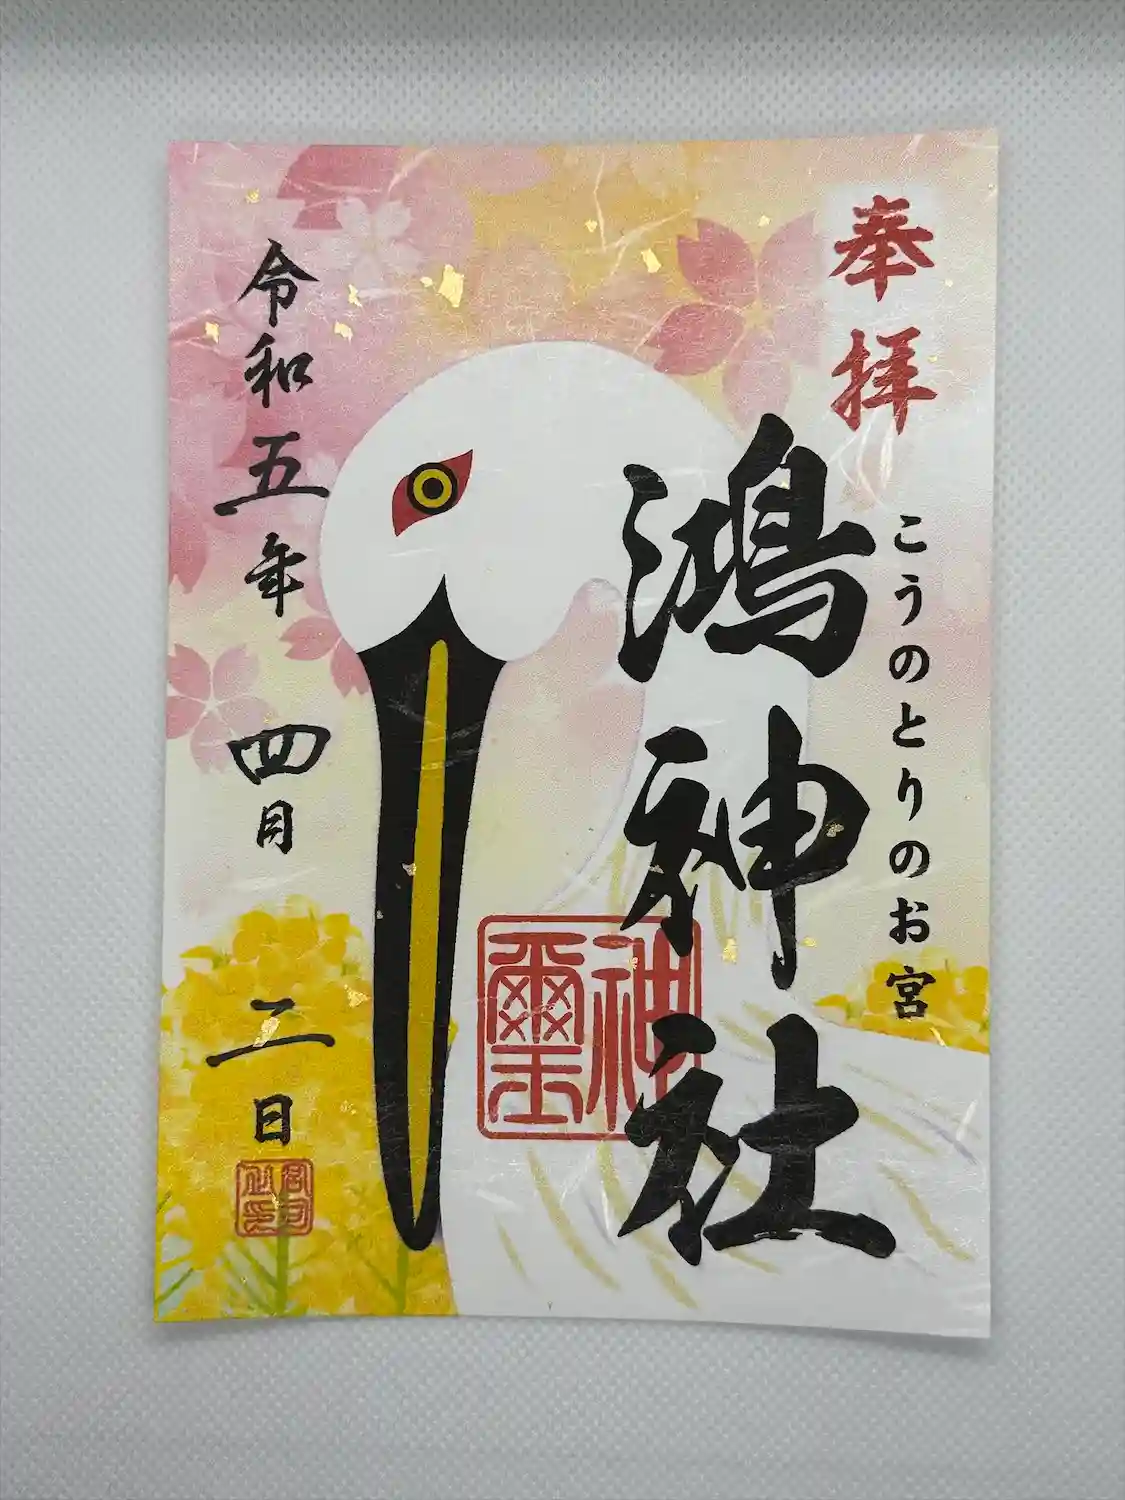 奉拝
こうのとりのお宮
鴻神社
神璽
令和五年 四月 二日